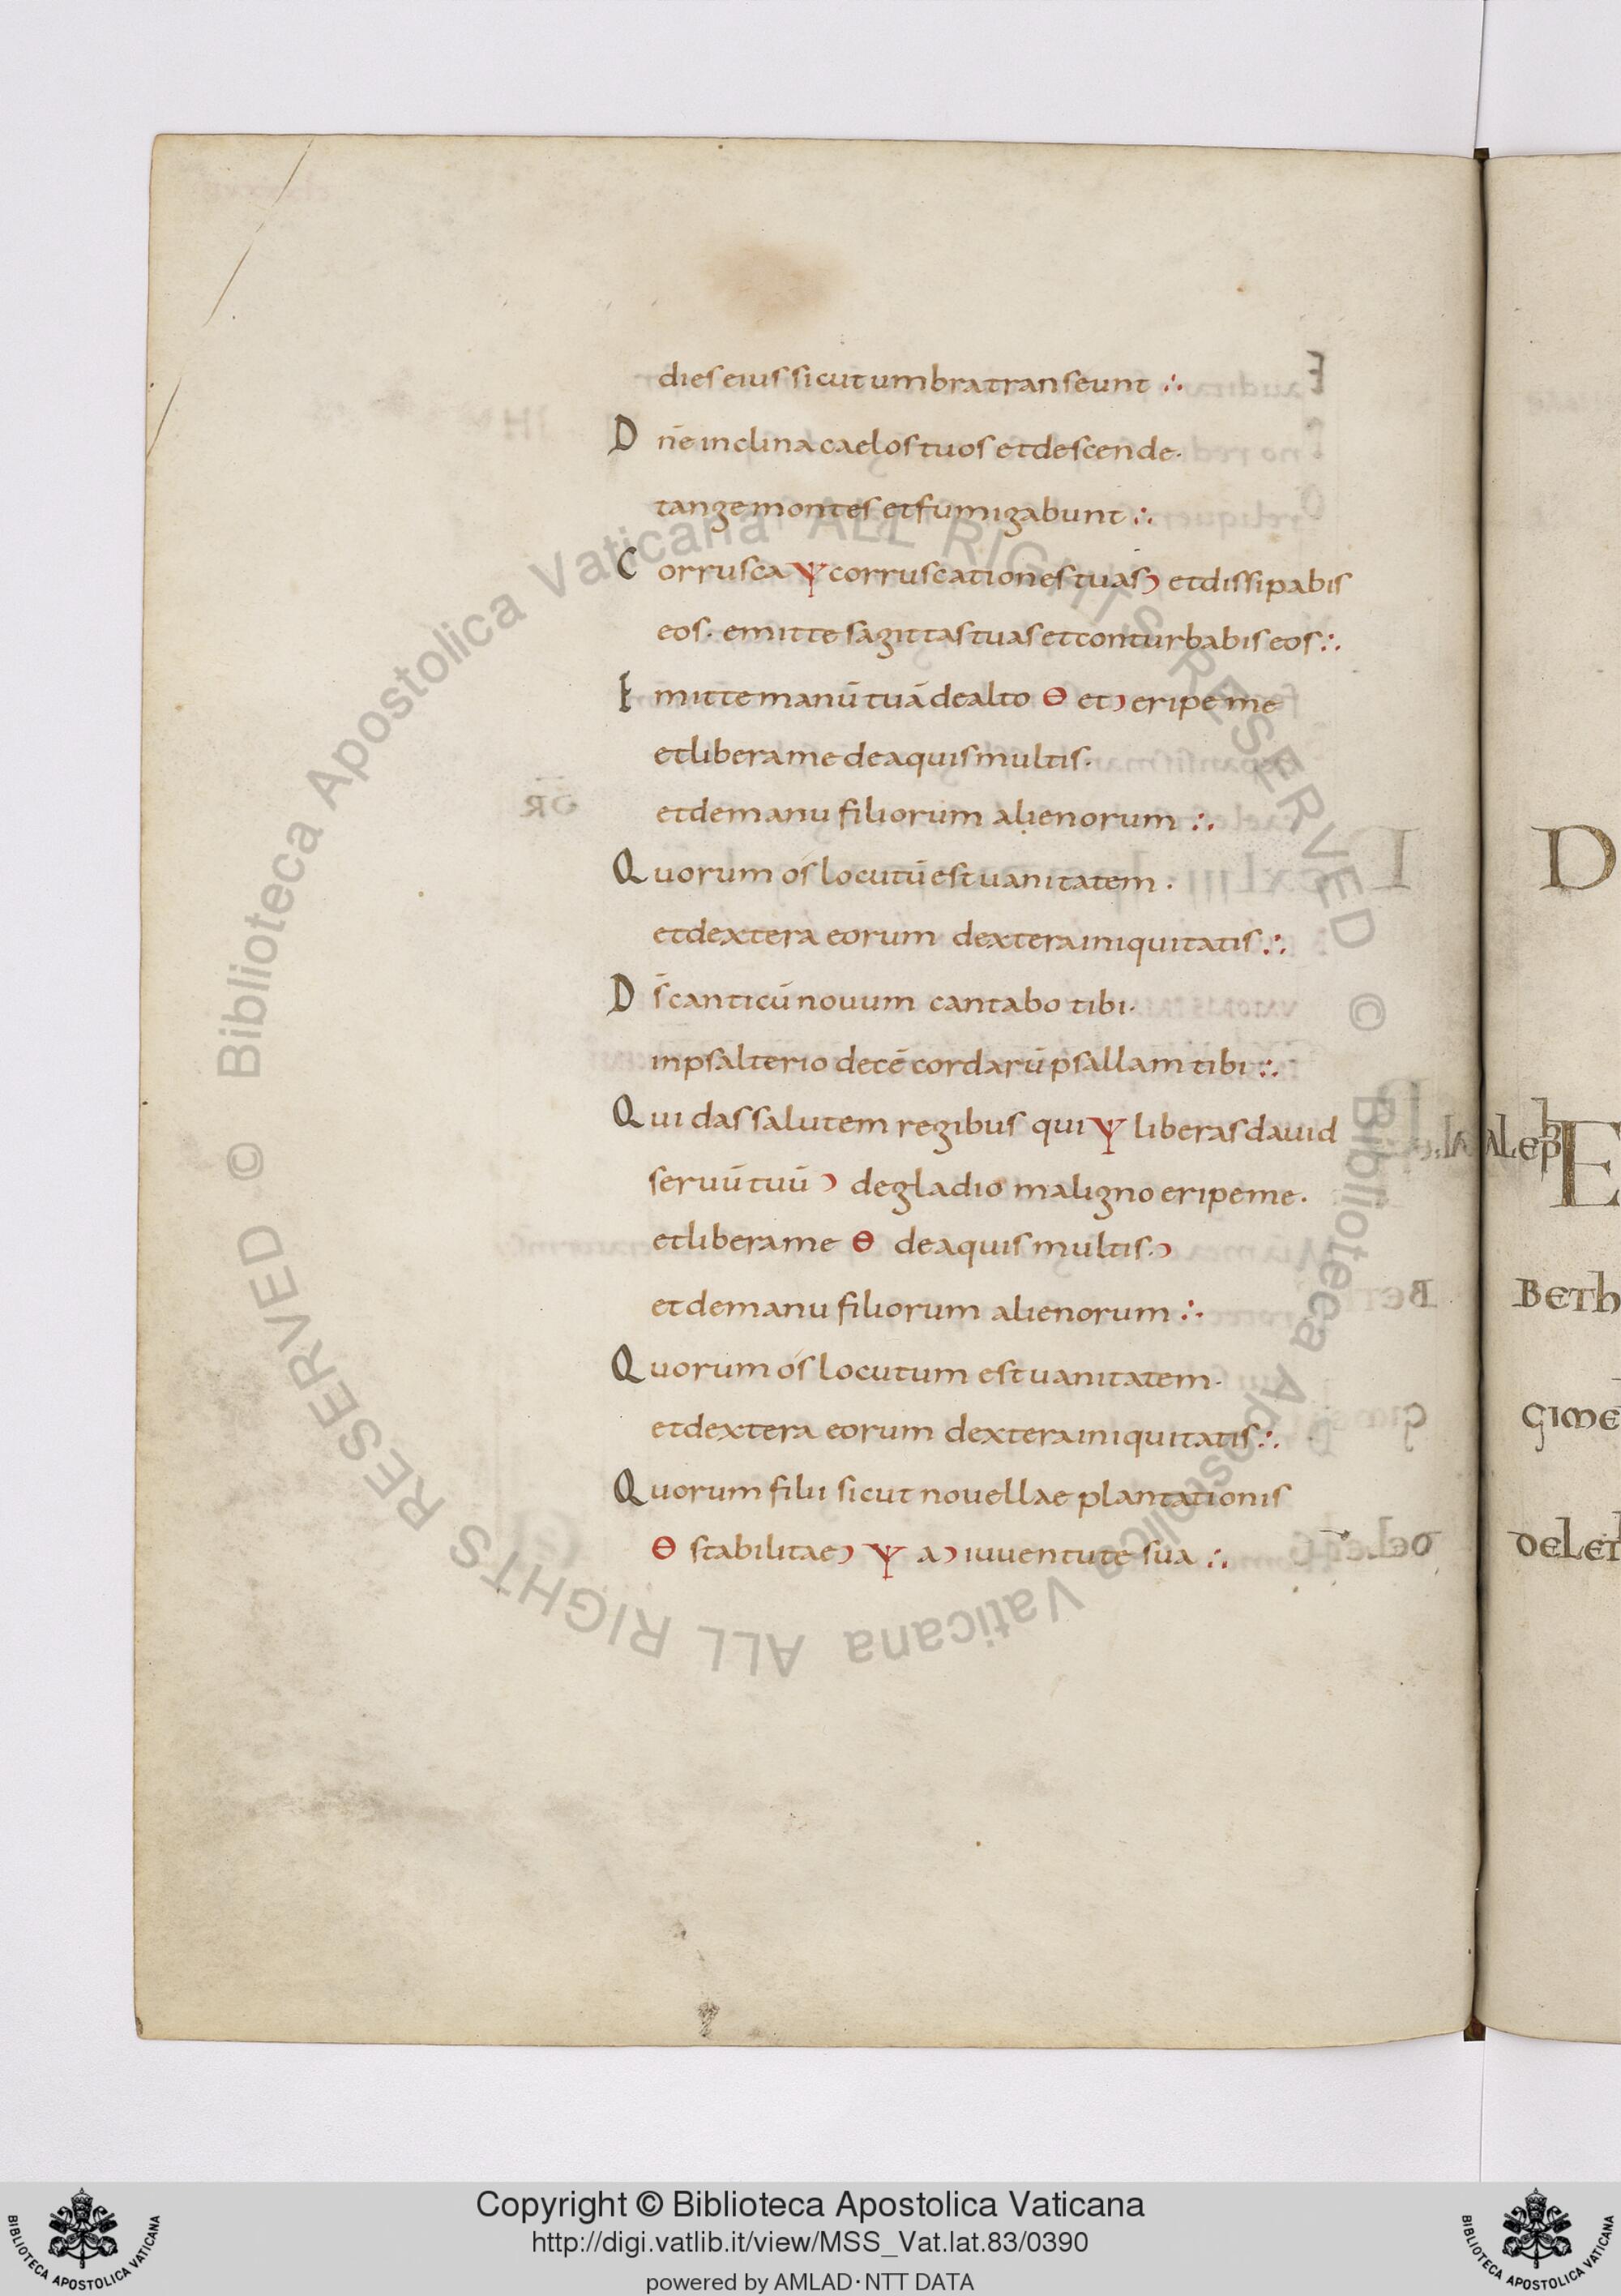 dies eius sicut umbra transeunt ∴
D nē inclina caelos tuos et descende·
tange montes et fumigabunt ∴
C orrusca Ψ corruscationes tuas ͻ et dissipabis
eos· emitte sagittas tuas et conturbabis eos ∴
E mitte manū tuā de alto Θ et ͻ eripe me
et libera me de aquis multis·
et de manu filiorum alienorum ∴
Q uorum os locutū est vanitatem ·
et dextera eorum dextera iniquitatis ∴
D s̄ canticū novum cantabo tibi·
in psalterio decē cordarū psallam tibi ∴
Q ui das salutem regibus qui Ψ liberas david
servū tuū ͻ de gladio maligno eripe me·
et libera me Θ de aquis multis· ͻ
et de manu filiorum alienorum ∴
Q uorum os locutum est vanitatem·
et dextera eorum dextera iniquitatis ∴
Q uorum filii sicut novellae plantationis
Θ stabilitae ͻ Ψ a ͻ iuventute sua ∴
D
ALEPH
E
BETH
GIME
DELET
© Biblioteca Apostolica Vaticana ALL RIGHTS RESERVED © Biblioteca Apostolica Vaticana ALL RIGHTS RESERVED
Copyright © Biblioteca Apostolica Vaticana
http://digi.vatlib.it/view/MSS_Vat.lat.83/0390
powered by AMLAD·NTT DATA
BIBLIOTECA APOSTOLICA VATICANA
BIBLIOTECA APOSTOLICA VATICANA